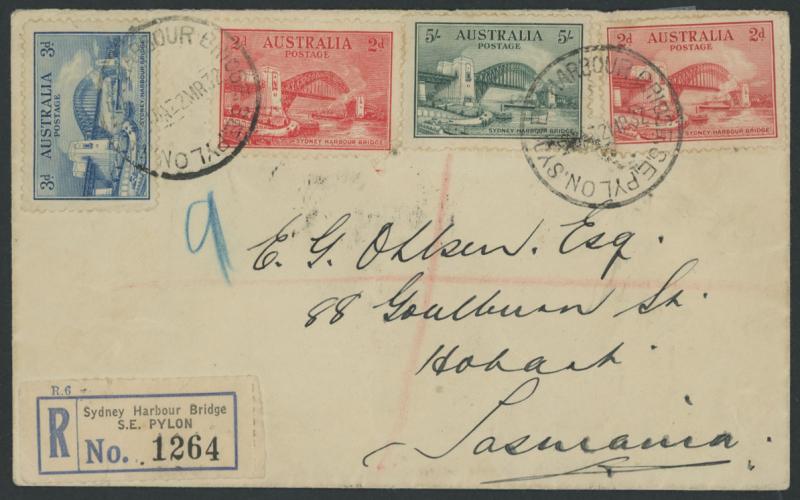 3d AUSTRALIA 3d
POSTAGE
SYDNEY HARBOUR BRIDGE
2d AUSTRALIA 2d
POSTAGE
SYDNEY HARBOUR BRIDGE
5/- AUSTRALIA 5/-
POSTAGE
SYDNEY HARBOUR BRIDGE
2d AUSTRALIA 2d
POSTAGE
SYDNEY HARBOUR BRIDGE
HARBOUR BRIDGE
22MR32
PYLON
HARBOUR BRIDGE
S.E. PYLON. SY
9
E. G. Ohlsen. Esq.
88 Goulburn St.
Hobart
Tasmania.
R.6
R
Sydney Harbour Bridge
S.E. PYLON
No. 1264